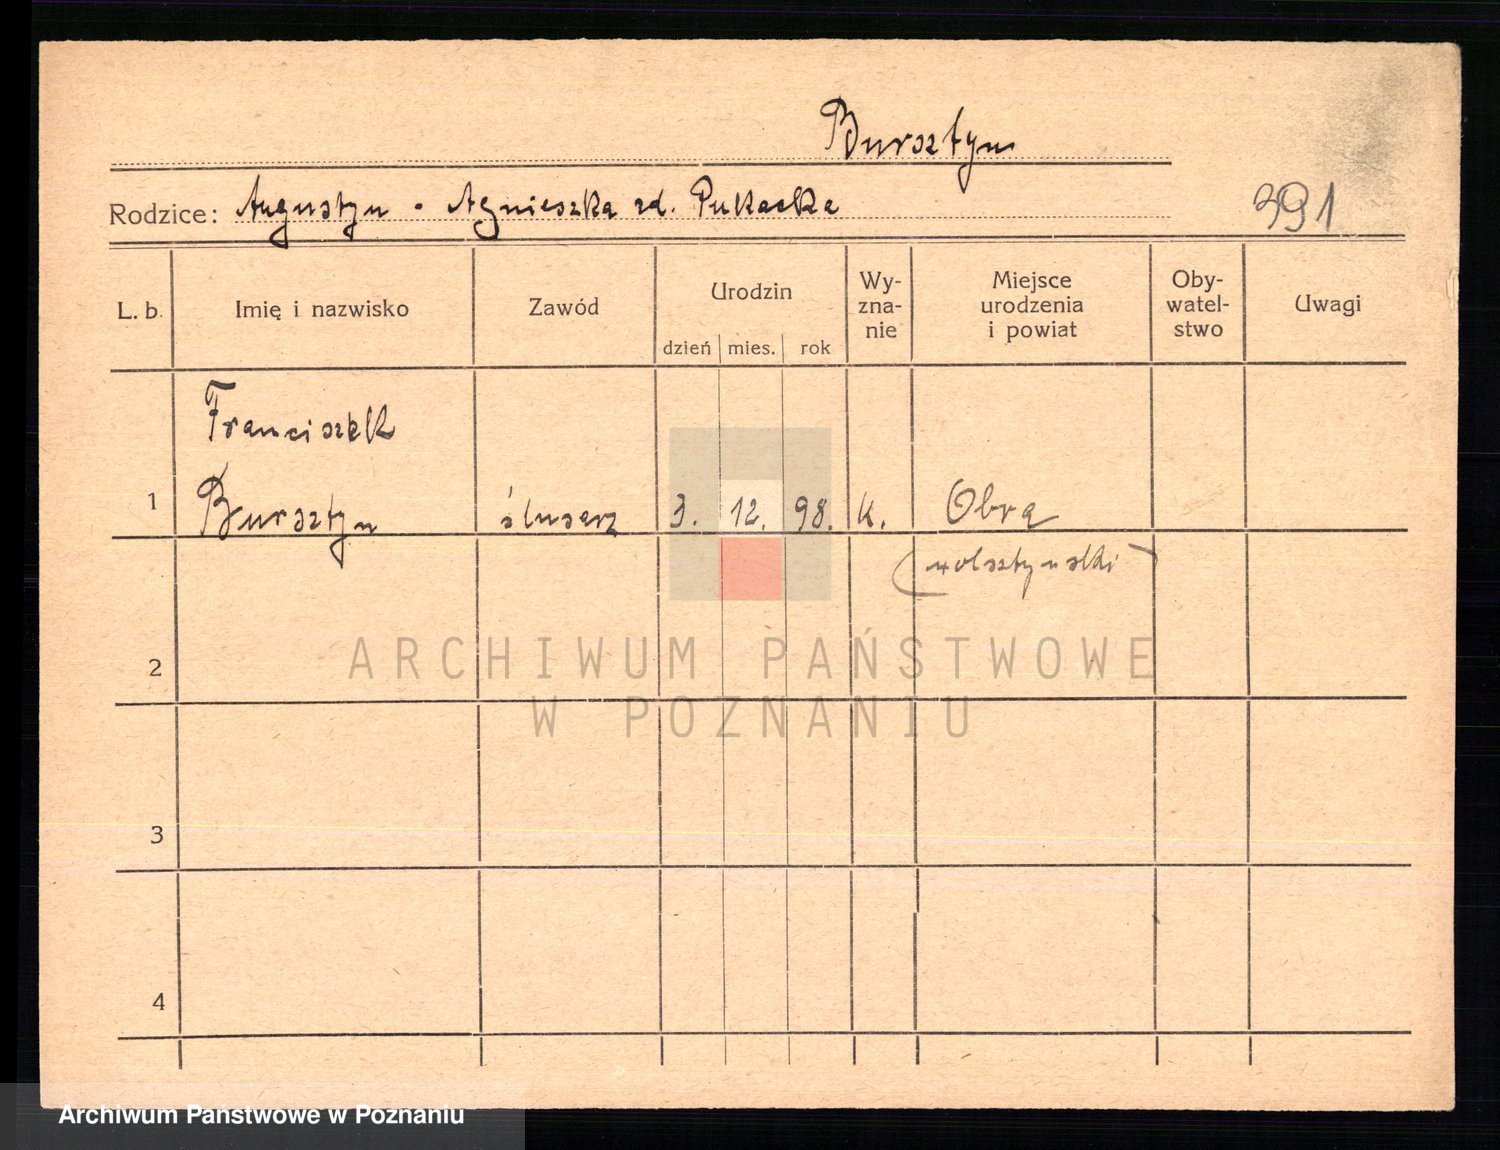 Bursztyn
Rodzice: Augustyn - Agnieszka zd. Pukacka
391
L. b.
Imię i nazwisko
Zawód
Urodzin
dzień mies. rok
Wy-
zna-
nie
Miejsce
urodzenia
i powiat
Oby-
watel-
stwo
Uwagi
Franciszek
1 Bursztyn ślusarz 3. 12. 98. k. Obra
(wolsztyński)
2
3
4
ARCHIWUM PAŃSTWOWE
W POZNANIU
Archiwum Państwowe w Poznaniu